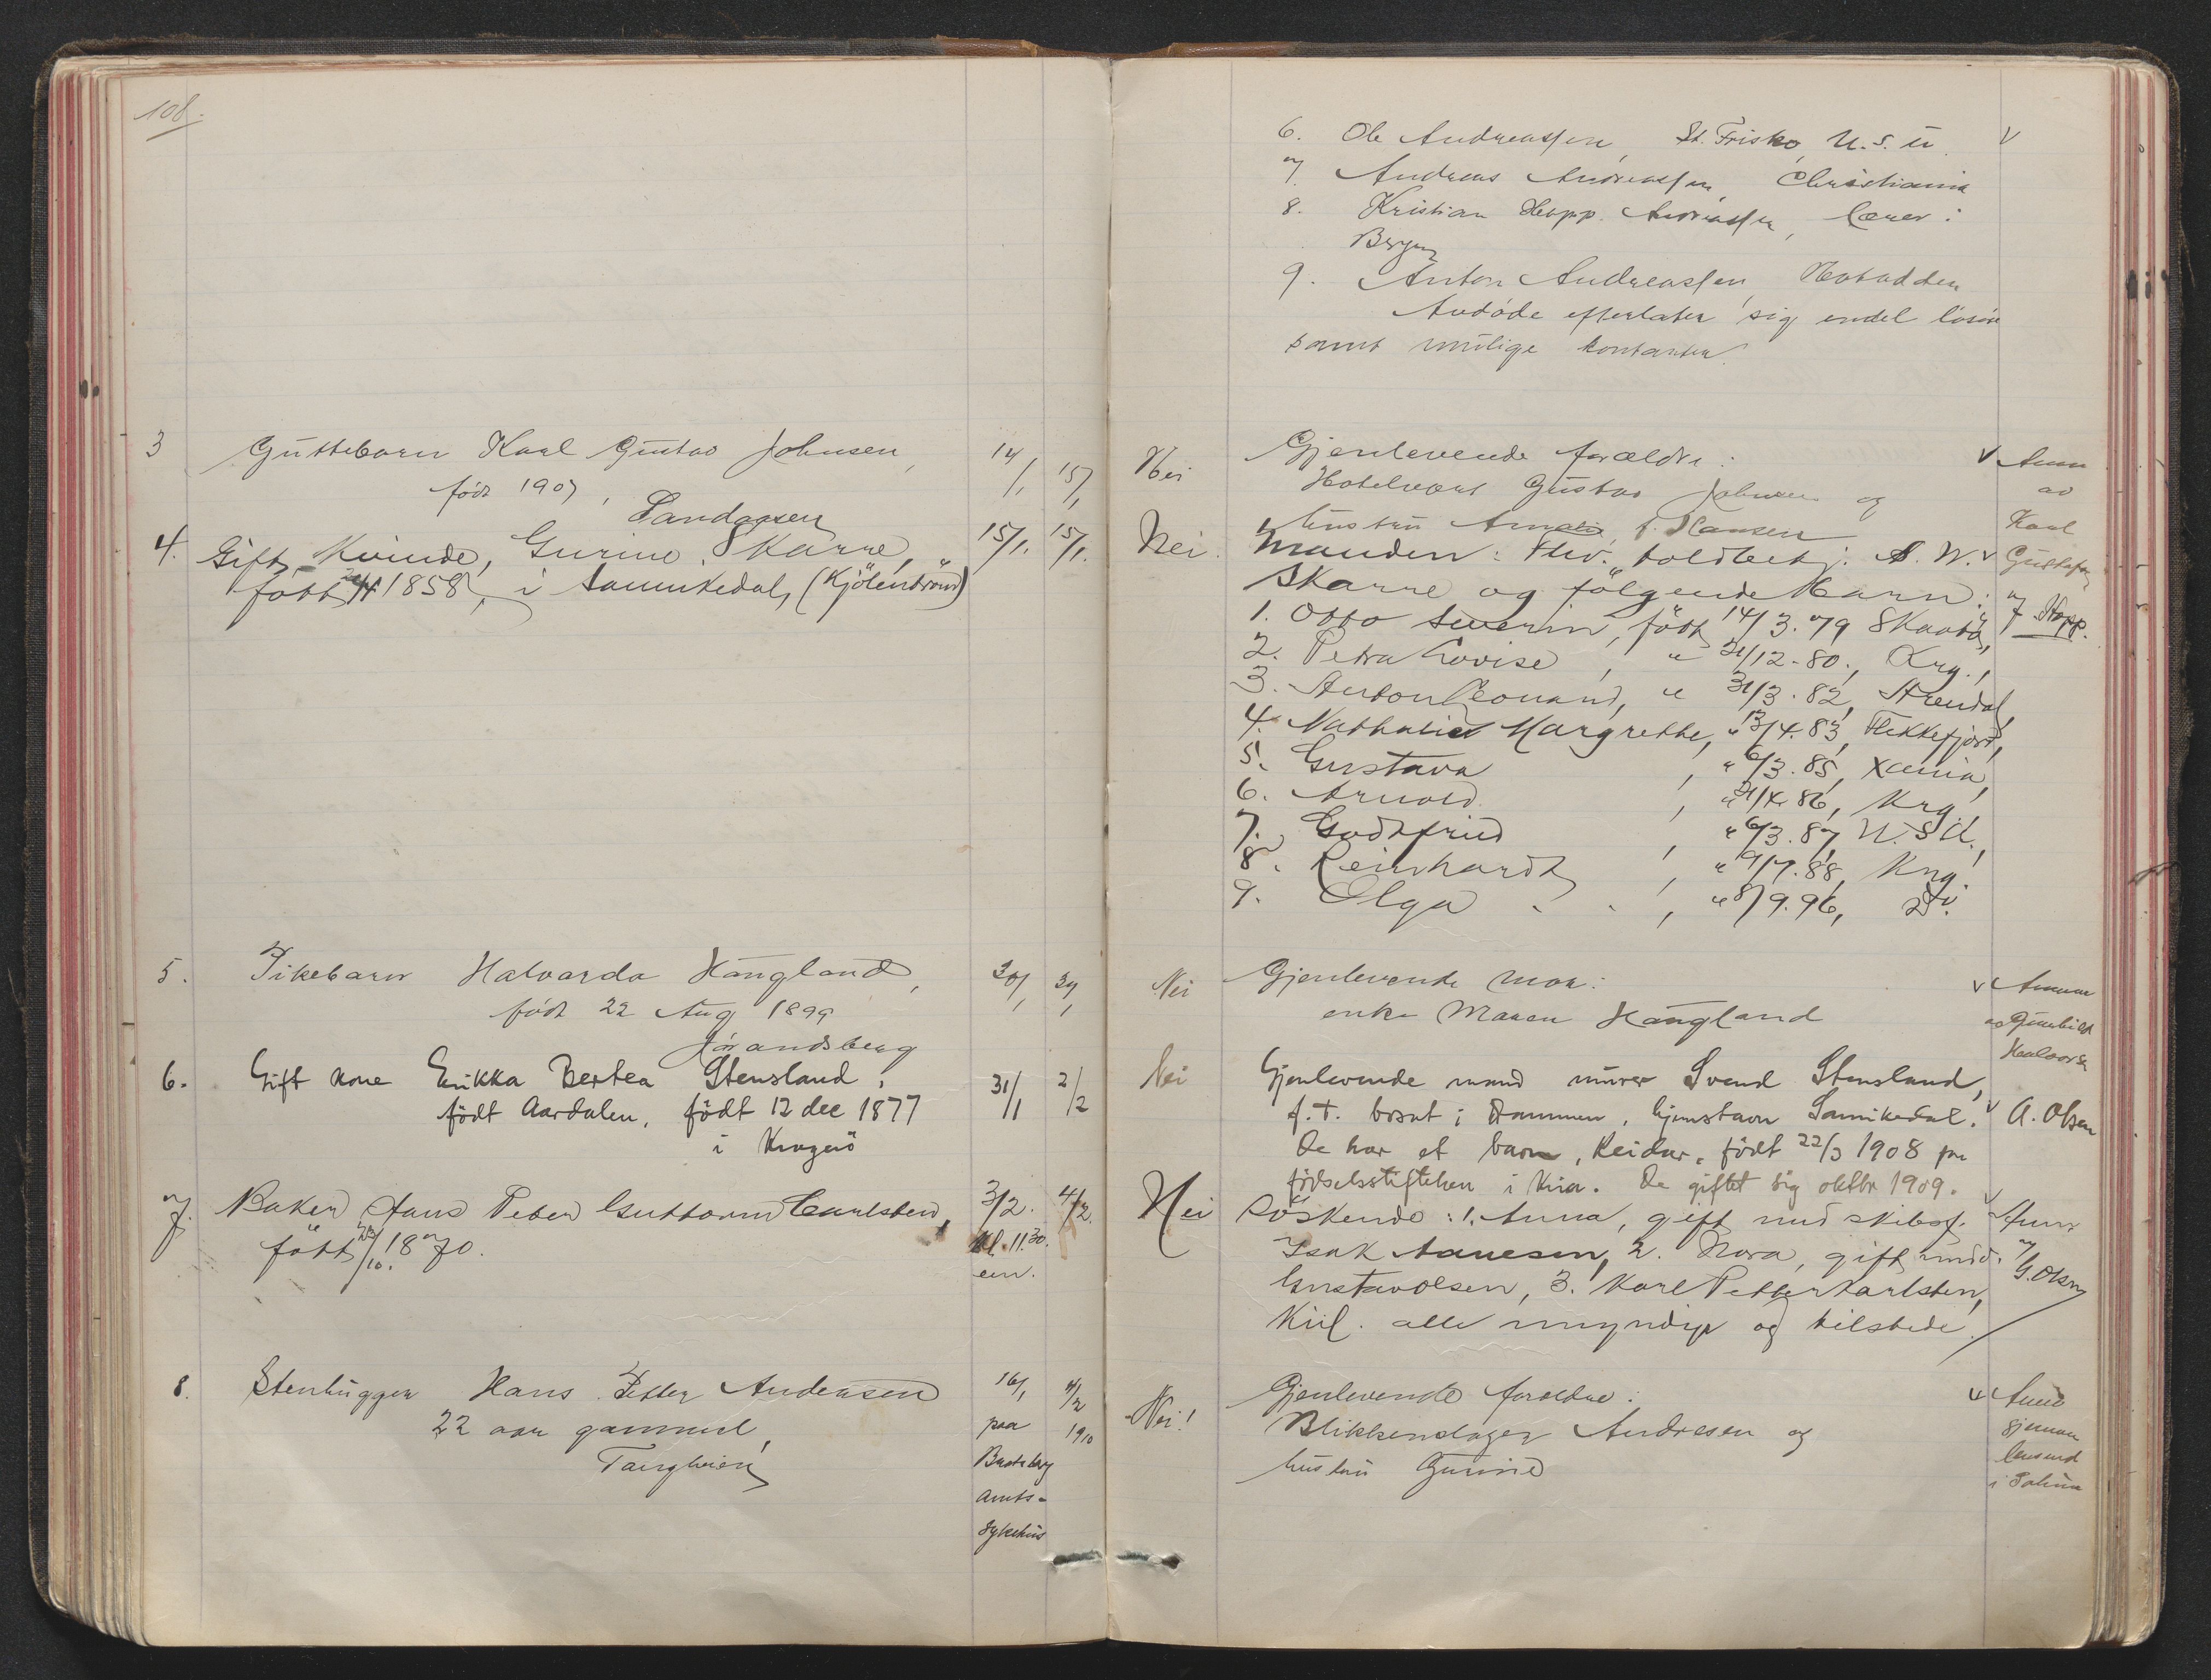 108.
3 Guttebarn Karl Gustav Johnsen, 14/1 15/1
født 1907,
Sandaasen
4. Gift Kvinde, Gurine Skarre, 15/1. 15/1.
født 1858, i Sannikedal, (Kjölendrönn)
5. Pikebarn Halvarda Haugland, 30/1 31/1
født 22 Aug 1899
6. Gift kone Erikka Bertea Stensland, 31/1 2/2
født Aardalen, født 12 dec 1877
i Kragerö
7. Baker Hans Peter Guttorm Carlsten, 3/2. 4/2.
født 23/10. 1870. kl. 11.30.
em.
8. Stenhugger Hans Petter Andersen 16/1 4/2
22 aar gammel, paa 1910
Tangheien Bratsberg
Amts-
Sykehus
6. Ole Andreassen, St. Frisko, U.S. v
7. Andreas Andreassen, Christiania
8. Kristian Hopp. Andreassen, lærer i
Bergen
9. Anton Andreassen, Notodden
Avdöde efterlater sig endel lösöre
samt mulige kontanter.
Nei Gjenlevende forældre: v Anm
Hotelvert Gustav Johnsen og av
hustru Amalie f. Hansen Karl
Nei. Manden: toldbetj. A. W. v Gustafsen
Skarre og følgende Barn: Hopp.
1. Otto Severin, født 14/3. 79 Skaatö,
2. Petra Lovise, " 21/12-80., Krg.,
3. Anton Leonard, " 31/3. 82, Arendal,
4. Nathalie Margrethe, " 13/4. 83, Flekkefjord,
5. Gustava, " 6/3. 85, Xania,
6. Arnold, " 21/4. 86, Krg.,
7. Godtfried, " 6/3. 87, U.S.A.,
8. Reinhardt, " 9/7. 88, Krg.
9. Olga, " 8/9. 96, do.
Nei Gjenlevende mor: v Anm
enke Maren Haugland av Gunhild
Halvorsen
Nei Gjenlevende mand murer Svend Stensland,
f.t. bosat i Drammen, hjemstavn Sannikedal. v A. Olsen
De har et barn, Reidar, født 22/3 1908 paa
födselsstiftelsen i Kria. De giftet sig oktbr 1909.
Nei Söskende: 1. Anna, gift med skibsf. v Anm
Isak Aanesen, 2. Nora, gift med G. Olsen
Gustav Olsen, 3. Karl Petter Karlsten,
Kiil. alle myndige og tilstede.
Nei! Gjenlevende forældre: v Anm
Blikkenslager Andresen og gjennem
hustru Gurine lensmd
i Solum